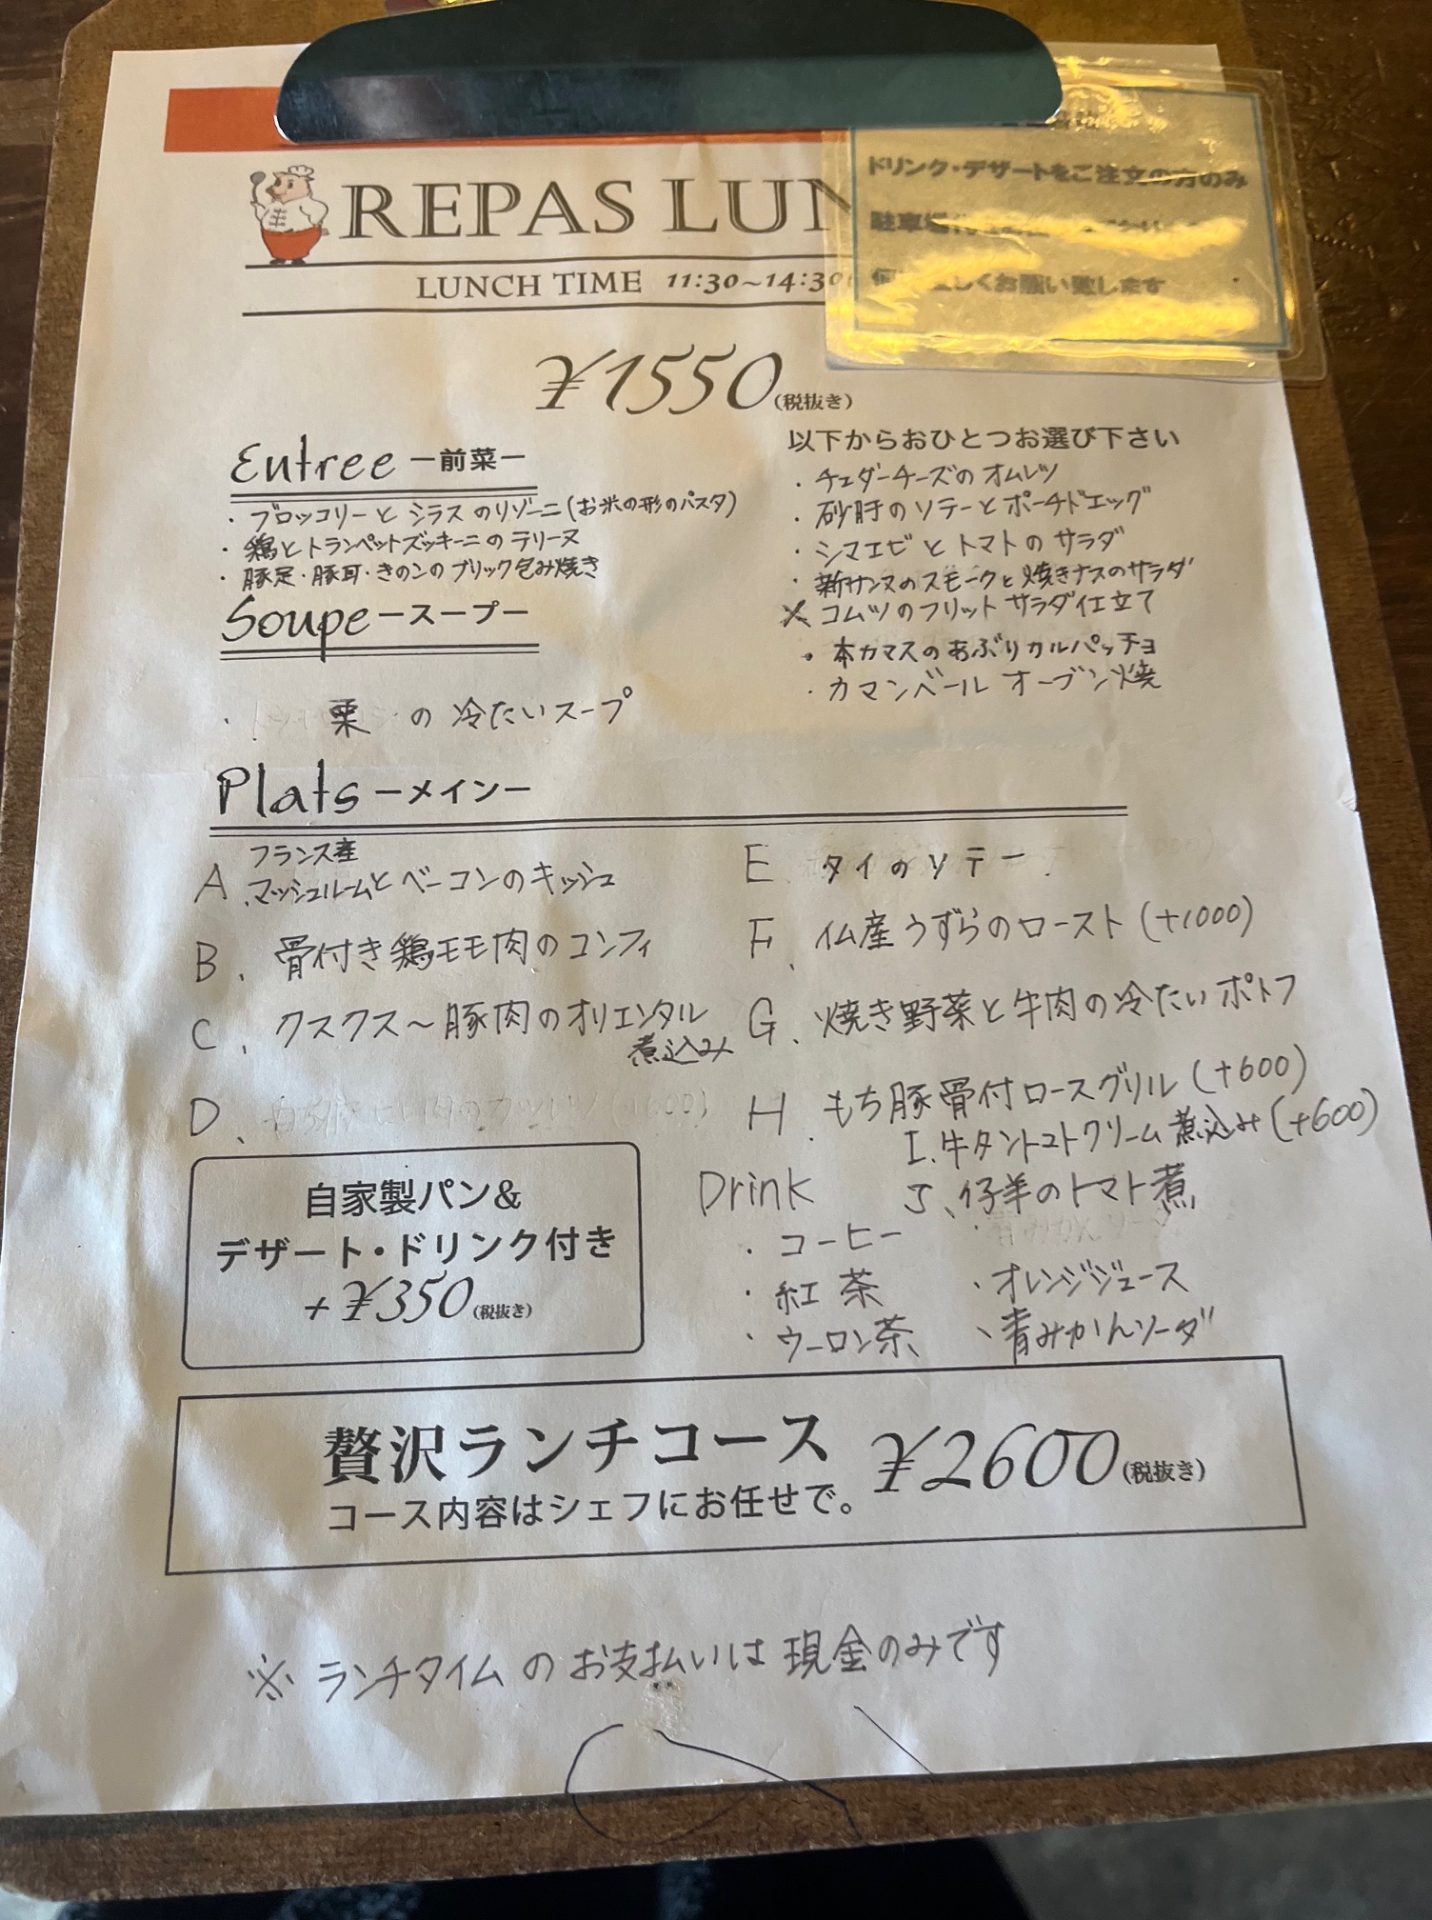 REPAS LUN
ドリンク・デザートをご注文の方のみ
駐車場
お願い致します
LUNCH TIME 11:30~14:30
¥1550(税抜き)
Entree ー前菜ー
・ブロッコリーと シラスのリゾーニ(お米の形のパスタ)
・鶏とトランペットズッキーニのテリーヌ
・豚足・豚耳・きのこのブリック包み焼き
以下からおひとつお選び下さい
・チェダーチーズのオムレツ
・砂肝のソテーとポーチドエッグ
・シマエビとトマトのサラダ
・新サンマのスモークと焼きナスのサラダ
×コムツのフリット サラダ仕立て
・本カマスのあぶりカルパッチョ
・カマンベール オーブン焼
Soupe ースープー
・栗の冷たいスープ
Plats ーメインー
A、フランス産
マッシュルームとベーコンのキッシュ
B、骨付き鶏モモ肉のコンフィ
C、クスクス〜豚肉のオリエンタル
煮込み
D、
E、タイのソテー
F、仏産うずらのロースト(+1000)
G、焼き野菜と牛肉の冷たいポトフ
H、もち豚骨付ロースグリル(+600)
I.牛タントマトクリーム煮込み(+600)
J、仔羊のトマト煮
自家製パン&
デザート・ドリンク付き
+¥350(税抜き)
Drink
・コーヒー
・紅茶
・ウーロン茶
・オレンジジュース
、青みかんソーダ
贅沢ランチコース ¥2600(税抜き)
コース内容はシェフにお任せで。
※ ランチタイムのお支払いは現金のみです